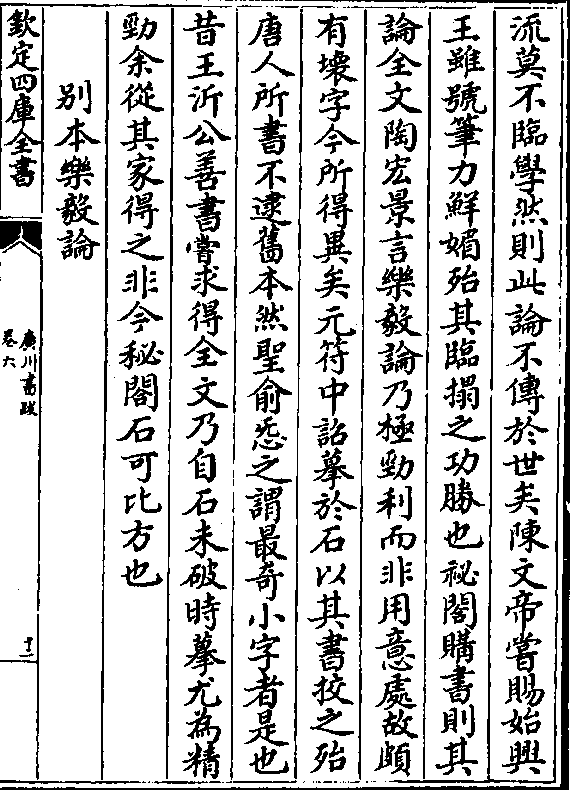 流莫不臨學然則此論不傳於世矣陳文帝嘗賜始興
王雖號筆力鮮媚殆其臨搨之功勝也祕閣購書則其
論全文陶宏景言樂毅論乃極勁利而非用意處故頗
有壞字今所得異矣元符中詔摹於石以其書挍之殆
唐人所書不逮舊本然聖俞悉之謂最奇小字者是也
昔王沂公善書嘗求得全文乃自石未破時摹尤為精
勁余從其家得之非今秘閣石可比方也
別本樂毅論
欽定四庫全書
廣川書跋
卷六
十二